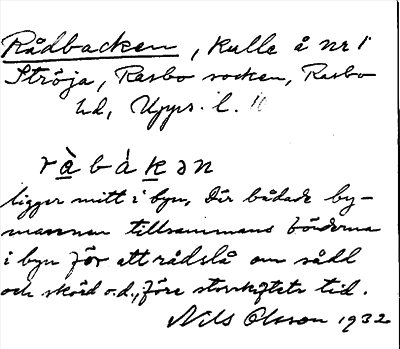 Rådbacken, kulle å nr 1
Ströja, Rasbo socken, Rasbo
hd, Upps. l.
ràbákən
ligger mitt i byn, där bådade by-
männen tillsammans bönderna
i byn för att rådslå om sådd
och skörd o.d., före storskiftets tid.
Nils Olsson 1932